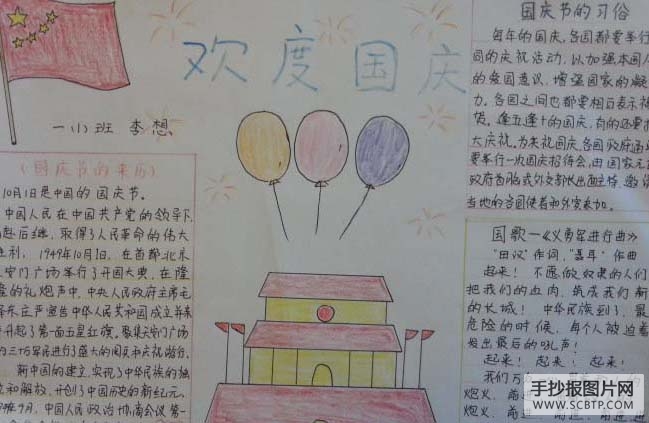 欢度国庆
一(小)班 李想
(国庆节的来历)
10月1日是中国的国庆节。
中国人民在中国共产党的领导下,
赴后继,取得了人民革命的伟大
胜利。1949年10月1日,在首都北京
安门广场举行了开国大典,在隆
的礼炮声中,中央人民政府主席毛
泽东庄严宣告中华人民共和国成立并亲
升起了第一面五星红旗。聚集天安门广场
的三十万军民进行了盛大的阅兵和庆祝游行。
新中国的建立,实现了中华民族的独
立和解放,开创了中国历史的新纪元。
年9月,中国人民政治协商会议第一
国庆节的习俗
每年的国庆,各国都要举行
同的庆祝活动,以加强本国人
的爱国意识,增强国家的凝
力。各国之间也都要相互表示祝
贺。逢五逢十的国庆,有的还要扩
大庆祝。为庆祝国庆,各国政府通
要举行一次国庆招待会,由国家元
政府首脑或外交部长出面主持,邀请
当地的各国使者和外宾参加。
国歌—《义勇军进行曲》
"田汉"作词,"聂耳"作曲
起来!不愿做奴隶的人们
把我们的血肉,筑成我们新
的长城!中华民族到了,最
危险的时候,每个人被迫着
发出最后的吼声!
起来!起来!起来!
我们万
炮火,前进
炮火,前进
手抄报图片网
WWW.SCBTP.COM